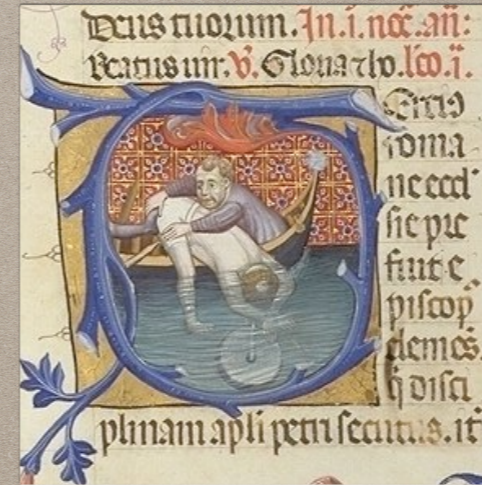 Deus tuorum. In .i. noc̄. an̄:
Beatus uir. V̄. Gloria ⁊ ho. lc̄o .i.
Terci9
roma
ne eccl'
sie pre
fuit e
piscop̄
clemēs.
q̄ disci
plinam apl̄i petri secutus. it